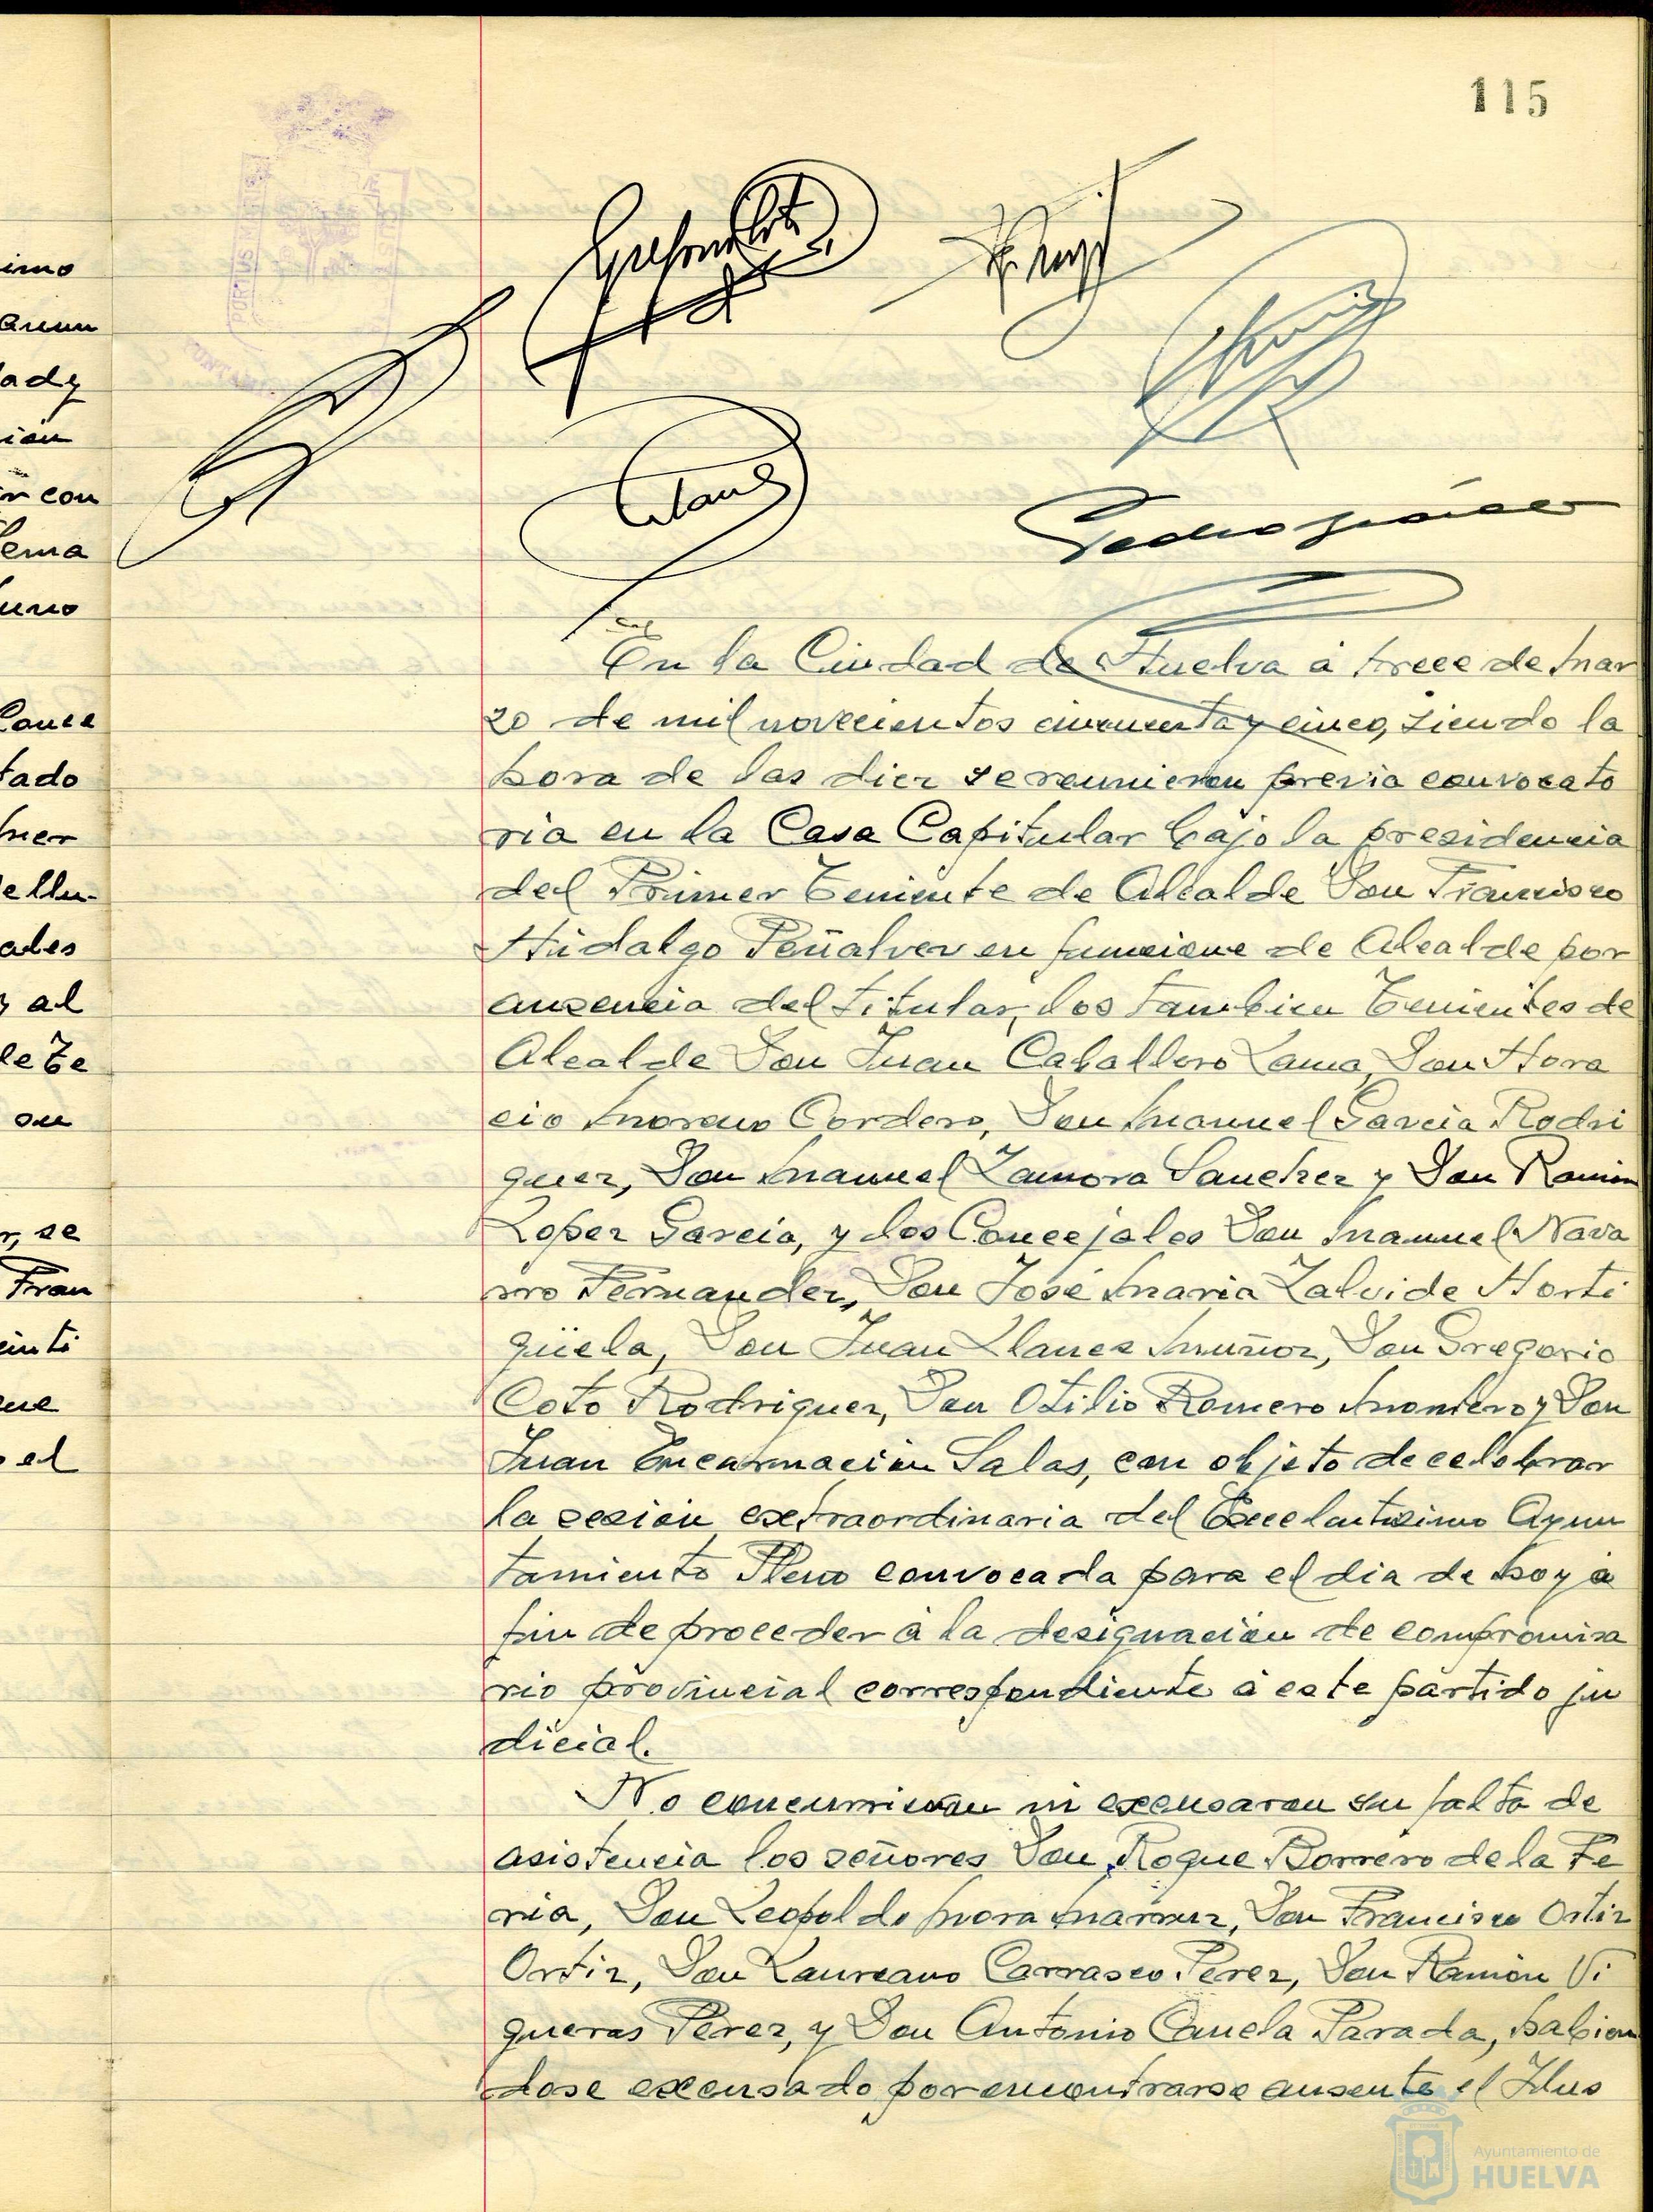 115
imo
ady
ion
r con
tema
uno
Conce
tado
mer
ales
y al
de Te
on
r, se
Fran
einti
que
o el
PORTUS MARIS
Gregorio Coto
Llanes
Pedro
En la Ciudad de Huelva á trece de Mar
zo de mil novecientos cincuenta y cinco, siendo la
hora de las diez se reunieron previa convocato
ria en la Casa Capitular bajo la presidencia
del Primer Teniente de Alcalde Don Francisco
Hidalgo Peñalver en funcione de Alcalde por
ausencia del titular, los tambien Tenientes de
Alcalde Don Juan Caballero Lama, Don Hora
cio Moreno Cordero, Don Manuel Garcia Rodri
guez, Don Manuel Zamora Sanchez y Don Ramón
Lopez Garcia, y los Concejales Don Manuel Nava
rro Fernandez, Don José Maria Zalvide Horti
güela, Don Juan Llanes Muñoz, Don Gregorio
Coto Rodriguez, Don Otilio Romero Montero y Don
Juan Encarnación Salas, con objeto de celebrar
la sesión extraordinaria del Excelentisimo Ayun
tamiento Pleno convocada para el dia de hoy a
fin de proceder á la designación de compromisa
rio provincial correspondiente á este partido ju
dicial.
No concurrieron ni excusaron su falta de
asistencia los señores Don Roque Borrero de la Fe
ria, Don Leopoldo Mora Don Francisco Ortiz
Ortiz, Don Laureano Carrasco Perez, Don Ramón Vi
gueras Pérez, y Don Antonio Canela Parada, habien
dose excusado por encontrarse ausente el Ilus
Ayuntamiento de
HUELVA